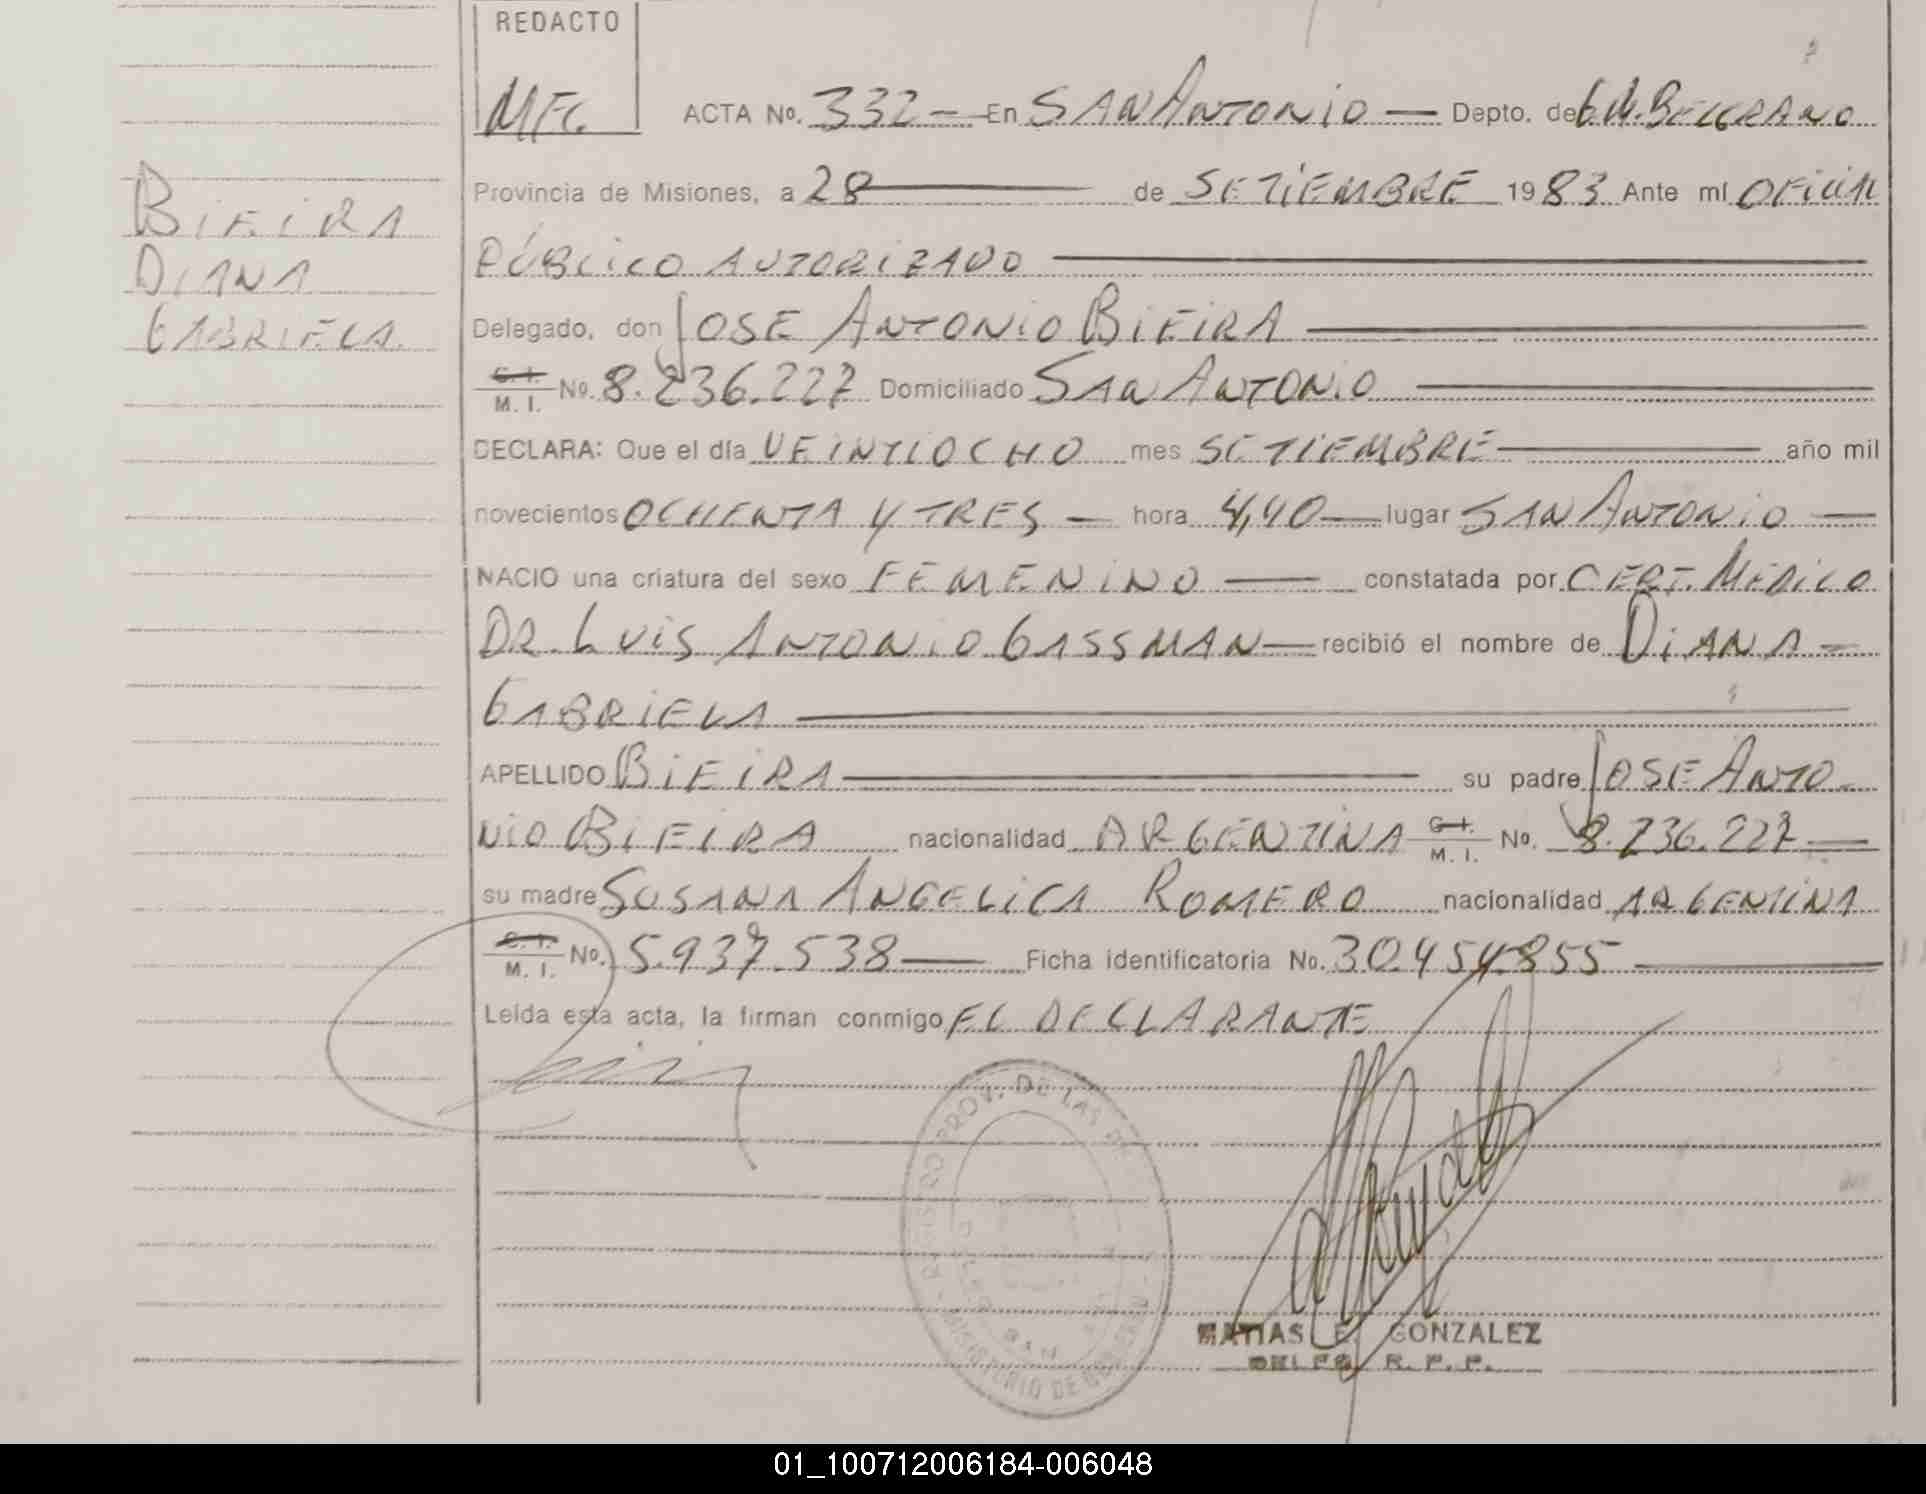 REDACTO
MFG.
ACTA No. 332 — En SAN ANTONIO — Depto. de G.M. BELGRANO
Provincia de Misiones, a 28 — de SETIEMBRE 1983 Ante mí OFICIAL
PÚBLICO AUTORIZADO —
Delegado, don JOSE ANTONIO BIEIRA —
C. I. M. I. No. 8.236.227 Domiciliado SAN ANTONIO —
DECLARA: Que el día VEINTIOCHO mes SETIEMBRE — año mil
novecientos OCHENTA Y TRES — hora 4,40 — lugar SAN ANTONIO —
NACIO una criatura del sexo FEMENINO — constatada por CERT. MEDICO
DR. LUIS ANTONIO GASSMAN — recibió el nombre de DIANA —
GABRIELA —
APELLIDO BIEIRA — su padre JOSE ANTO-
NIO BIEIRA nacionalidad ARGENTINA C. I. M. I. No. 8.236.227 —
su madre SUSANA ANGELICA ROMERO nacionalidad ARGENTINA
C. I. M. I. No. 5.937.538 — Ficha identificatoria No. 30.454.855 —
Leída esta acta, la firman conmigo EL DECLARANTE
BIEIRA
DIANA
GABRIELA.
PROV. DE LAS
SAN
MINISTERIO DE GOBIERNO
MATIAS E. GONZALEZ
R. P. P.
01_100712006184-006048